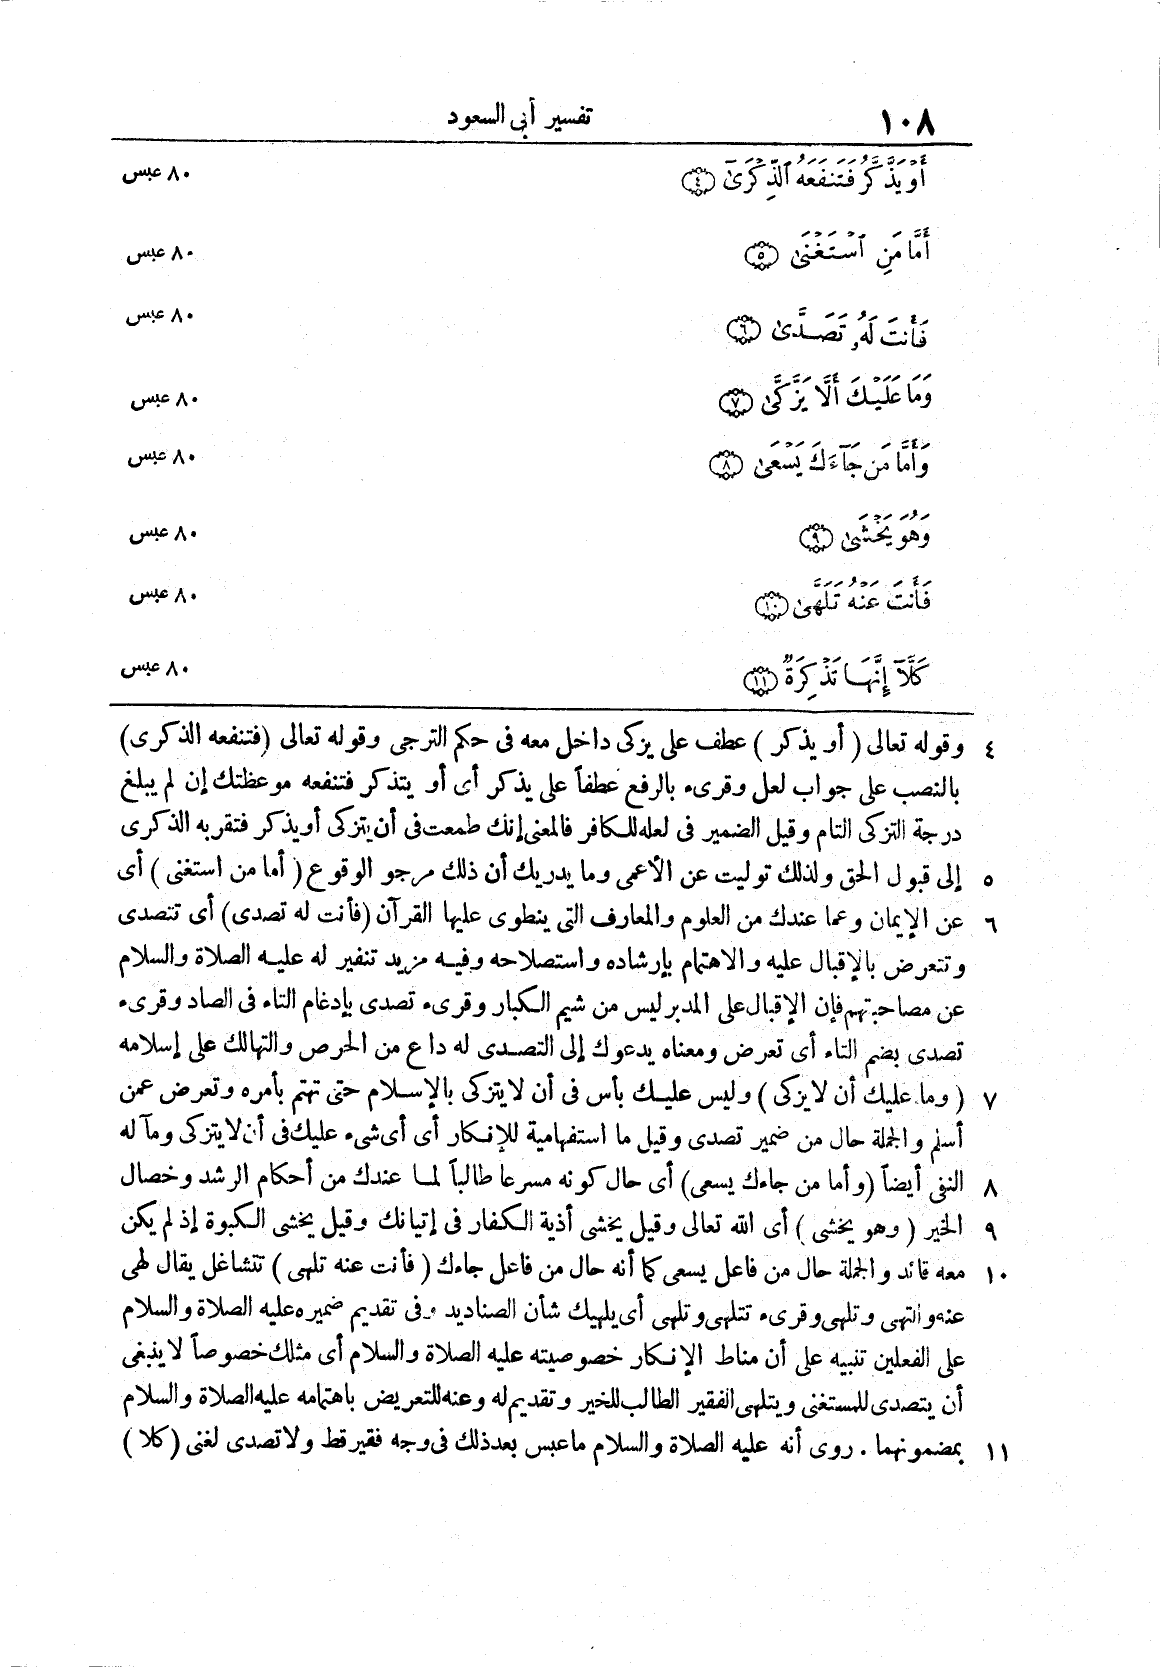 ١٠٨ تفسير أبى السعود
أَوْ يَذَّكَّرُ فَتَنفَعَهُ ٱلذِّكْرَىٰٓ ﴿٤﴾ ٨٠ عبس
أَمَّا مَنِ ٱسْتَغْنَىٰ ﴿٥﴾ ٨٠ عبس
فَأَنتَ لَهُۥ تَصَدَّىٰ ﴿٦﴾ ٨٠ عبس
وَمَا عَلَيْكَ أَلَّا يَزَّكَّىٰ ﴿٧﴾ ٨٠ عبس
وَأَمَّا مَن جَآءَكَ يَسْعَىٰ ﴿٨﴾ ٨٠ عبس
وَهُوَ يَخْشَىٰ ﴿٩﴾ ٨٠ عبس
فَأَنتَ عَنْهُ تَلَهَّىٰ ﴿١٠﴾ ٨٠ عبس
كَلَّآ إِنَّهَا تَذْكِرَةٌ ﴿١١﴾ ٨٠ عبس
٤ وقوله تعالى ( أو يذكر ) عطف على يزكى داخل معه فى حكم الترجى وقوله تعالى (فتنفعه الذكرى)
بالنصب على جواب لعل وقرىء بالرفع عطفاً على يذكر أى أو يتذكر فتنفعه موعظتك إن لم يبلغ
درجة التزكى التام وقيل الضمير فى لعله للكافر فالمعنى إنك طمعت فى أن يتزكى أو يذكر فتقربه الذكرى
٥ إلى قبول الحق ولذلك توليت عن الأعمى وما يدريك أن ذلك مرجو الوقوع ( أما من استغنى ) أى
٦ عن الإيمان وعما عندك من العلوم والمعارف التى ينطوى عليها القرآن (فأنت له تصدى) أى تتصدى
وتتعرض بالإقبال عليه والاهتمام بإرشاده واستصلاحه وفيه مزيد تنفير له عليه الصلاة والسلام
عن مصاحبتهم فإن الإقبال على المدبر ليس من شيم الكبار وقرىء تصدى بإدغام التاء فى الصاد وقرىء
تصدى بضم التاء أى تعرض ومعناه يدعوك إلى التصدى له داع من الحرص والتهالك على إسلامه
٧ ( وما عليك أن لا يزكى ) وليس عليك بأس فى أن لا يتزكى بالإسلام حتى تهتم بأمره وتعرض عمن
أسلم والجملة حال من ضمير تصدى وقيل ما استفهامية للإنكار أى أى شىء عليك فى أن لا يتزكى ومآله
٨ النفى أيضاً (وأما من جاءك يسعى) أى حال كونه مسرعا طالباً لما عندك من أحكام الرشد وخصال
٩ الخير ( وهو يخشى ) أى الله تعالى وقيل يخشى أذية الكفار فى إتيانك وقيل يخشى الكبوة إذ لم يكن
١٠ معه قائد والجملة حال من فاعل يسعى كما أنه حال من فاعل جاءك ( فأنت عنه تلهى ) تتشاغل يقال لهى
عنه والتهى وتلهى وقرىء تتلهى وتلهى أى يلهيك شأن الصناديد وفى تقديم ضميره عليه الصلاة والسلام
على الفعلين تنبيه على أن مناط الإنكار خصوصيته عليه الصلاة والسلام أى مثلك خصوصاً لا ينبغى
أن يتصدى للمستغنى ويتلهى الفقير الطالب للخير وتقديم له وعنه للتعريض باهتمامه عليه الصلاة والسلام
١١ بمضمونهما . روى أنه عليه الصلاة والسلام ما عبس بعد ذلك فى وجه فقير قط ولا تصدى لغنى (كلا )